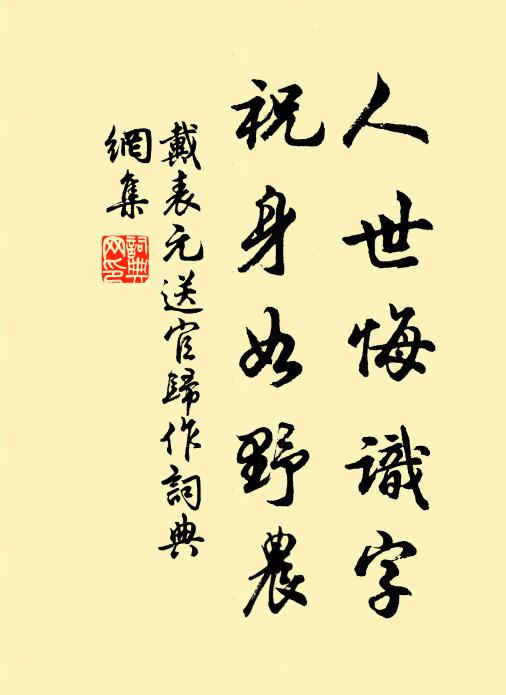 人世悔識字
祝身如野農
戴表元送官歸作詞典
網集
詞典
网印